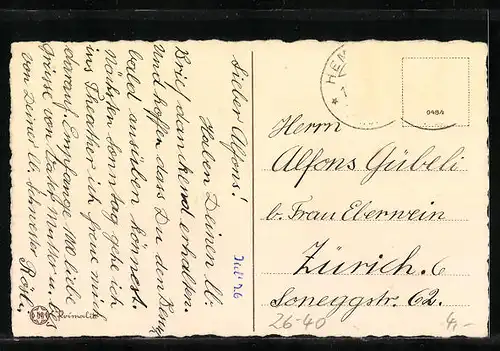 Lieber Alfons!
Haben Deinen lb.
Brief dankend erhalten.
Und hoffen dass Du den Beruf
bald ausüben könnest.
Nächsten Sonntag gehe ich
ins Theather ich freue mich
darauf. Empfange 1000 liebe
Grüsse von Vater Mutter u.
von Deiner lb. Schwester Rösl.
Juli 26
Primalit
HE
0484
Herrn
Alfons Gübeli
b. Frau Eberwein
Zürich. 6
Soneggstr. 62.
26-40
4,-